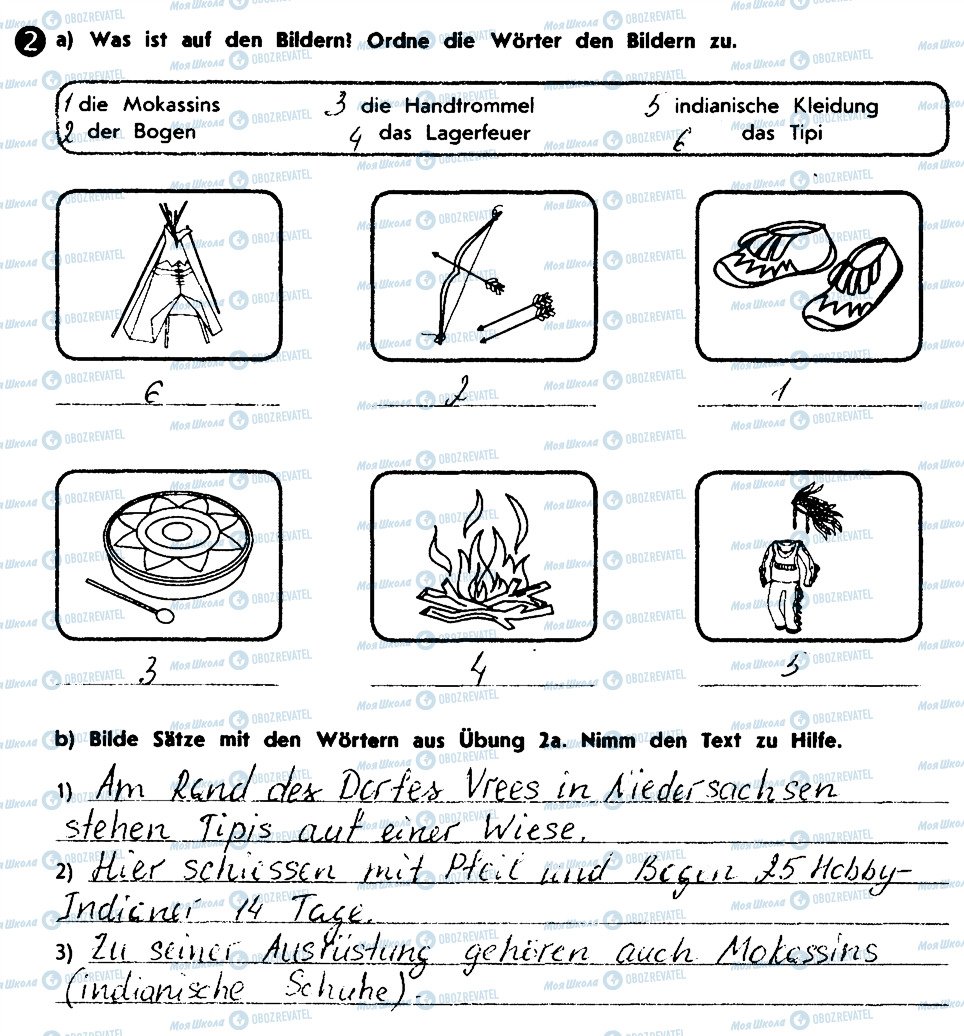 2 a) Was ist auf den Bildern? Ordne die Wörter den Bildern zu.
1 die Mokassins 3 die Handtrommel 5 indianische Kleidung
2 der Bogen 4 das Lagerfeuer 6 das Tipi
6 2 1
3 4 5
b) Bilde Sätze mit den Wörtern aus Übung 2a. Nimm den Text zu Hilfe.
1) Am Rand des Dorfes Vrees in Niedersachsen
stehen Tipis auf einer Wiese.
2) Hier schiessen mit Pfeil und Bogen 25 Hobby-
Indianer 14 Tage.
3) Zu seiner Ausrüstung gehören auch Mokassins
(indianische Schuhe).
МояШкола OBOZREVATEL